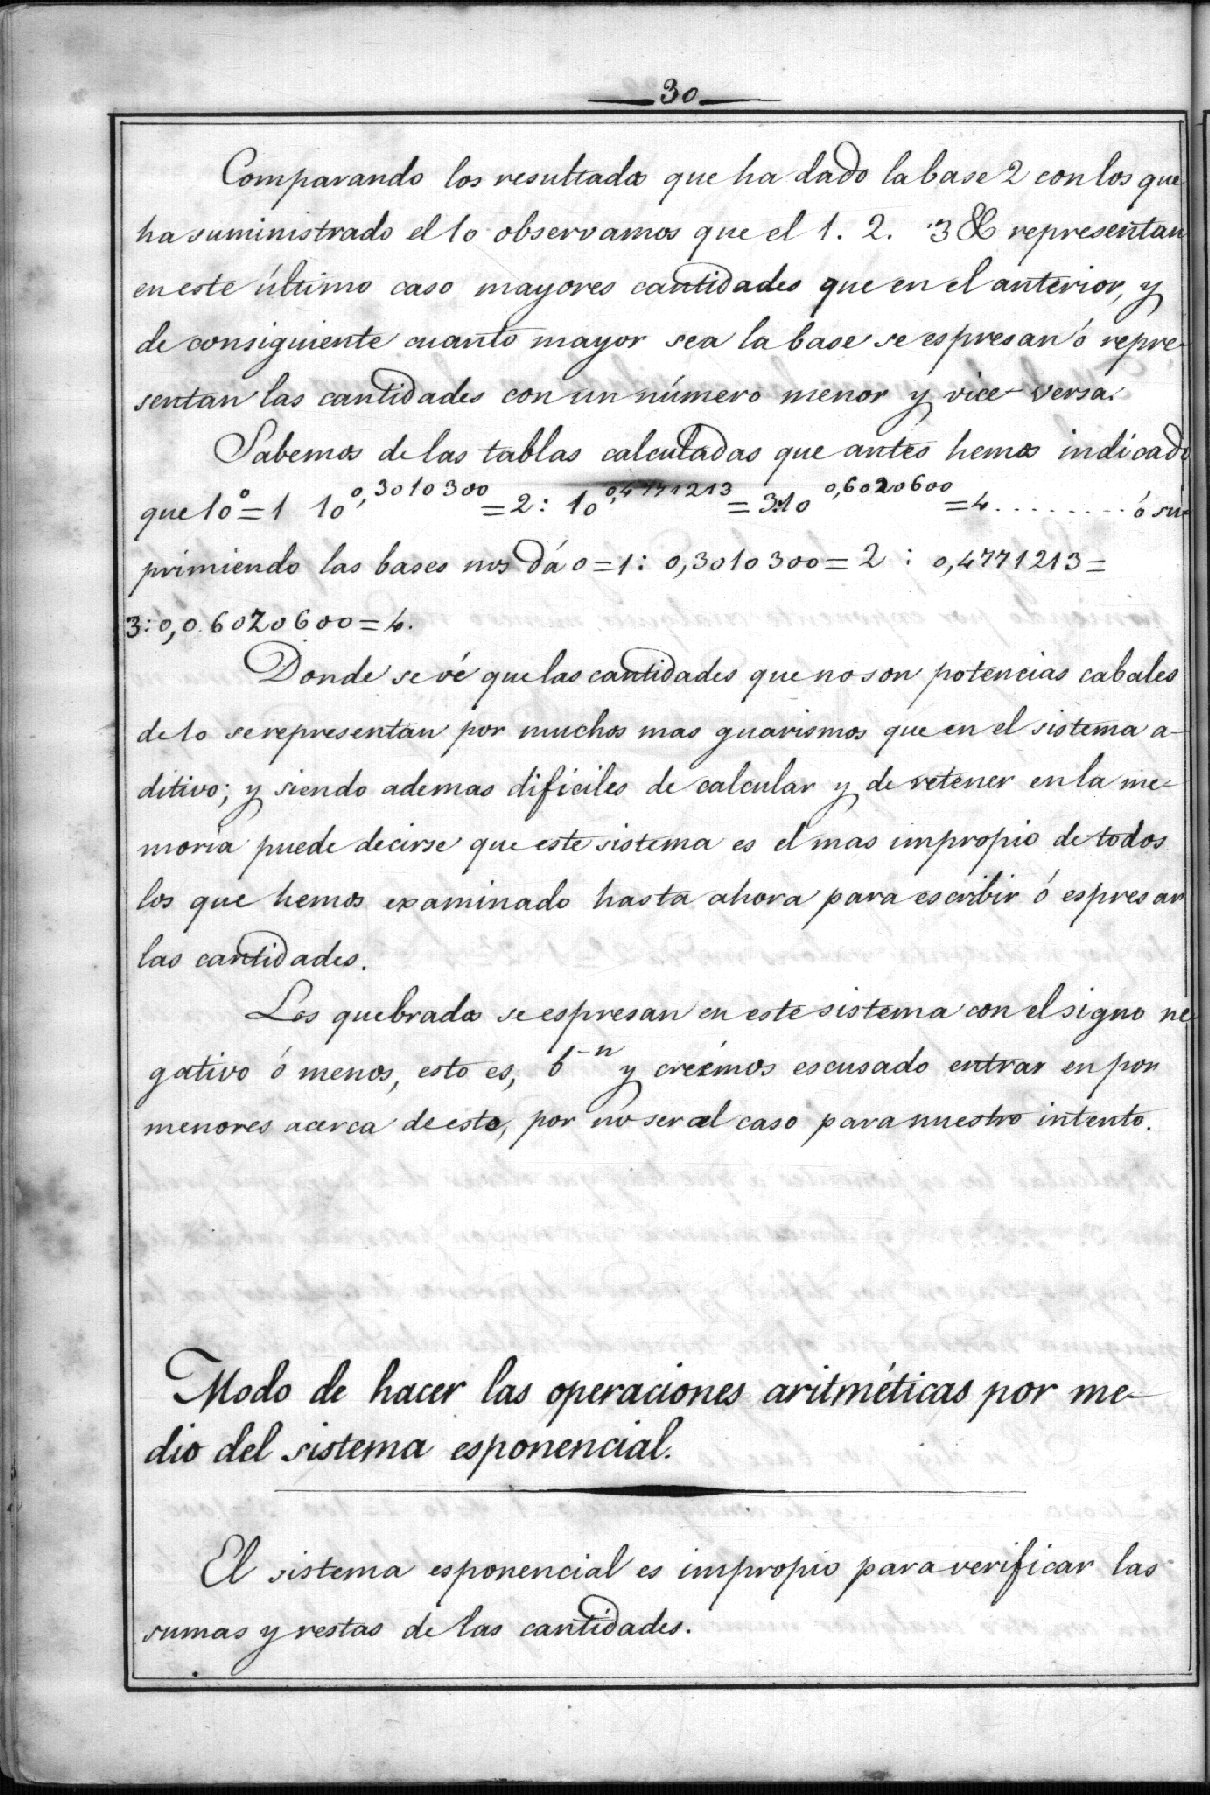 30
Comparando los resultados que ha dado la base 2 con los que
ha suministrado el 10 observamos que el 1. 2. 3 &c representan
en este último caso mayores cantidades que en el anterior, y
de consiguiente cuanto mayor sea la base se espresan ó repre-
sentan las cantidades con un número menor y vice-versa.
Sabemos de las tablas calculadas que antes hemos indicado
que 10⁰=1 10^0,3010300=2: 10^0,4771213=3:10^0,6020600=4........ó su-
primiendo las bases nos dá 0=1: 0,3010300=2: 0,4771213=
3:0,0.6020600=4.
Donde se vé que las cantidades que no son potencias cabales
de 10 se representan por muchos mas guarismos que en el sistema a-
ditivo; y siendo ademas dificiles de calcular y de retener en la me-
moria puede decirse que este sistema es el mas impropio de todos
los que hemos examinado hasta ahora para escribir ó espresar
las cantidades.
Los quebrados se espresan en este sistema con el signo ne
gativo ó menos, esto es, b⁻ⁿ y creémos escusado entrar en por
menores acerca de esto, por no ser el caso para nuestro intento.
Modo de hacer las operaciones aritméticas por me-
dio del sistema esponencial.
El sistema esponencial es impropio para verificar las
sumas y restas de las cantidades.